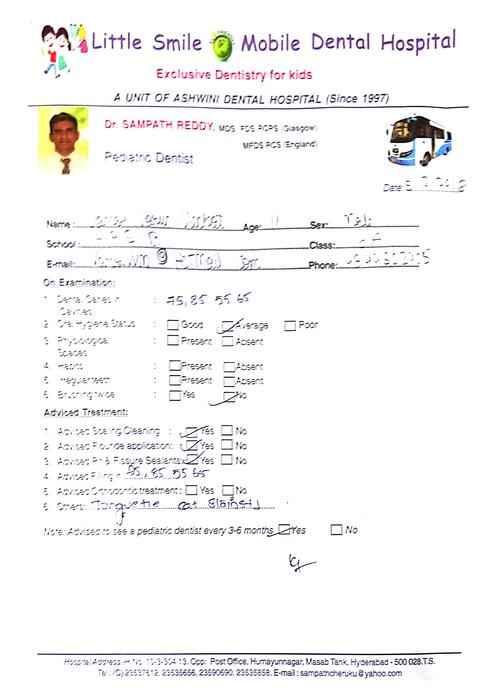 Little Smile Mobile Dental Hospital
Exclusive Dentistry for kids
A UNIT OF ASHWINI DENTAL HOSPITAL (Since 1997)
Dr. SAMPATH REDDY, MDS, FDS RCPS (Glasgow)
MFDS RCS (England)
Pediatric Dentist
Date:
Name : Age: Sex:
School : Class:
E-mail: Phone:
On Examination:
1. Dental Caries in Cavities : 75, 85 55 65
2. Oral Hygiene Status : Good Average Poor
3. Physiological Spaces : Present Absent
4. Habits : Present Absent
5. Irregular teeth : Present Absent
6. Brushing twice : Yes No
Adviced Treatment:
1. Adviced Scaling Cleaning : Yes No
2. Adviced Flouride application: Yes No
3. Adviced Pit & Fissure Sealants: Yes No
4. Adviced Filling : 85, 55 65
5. Adviced Orthodontic treatment : Yes No
6. Others: Tongue tie
Note: Advised to see a pediatric dentist every 3-6 months Yes No
Hospital Address : H. No. Opp: Post Office, Humayunnagar, Masab Tank, Hyderabad - 500 028.T.S.
Tel : (O) 23537612, 23535656, 23590690, 23535858. E-mail : sampathcheruku@yahoo.com